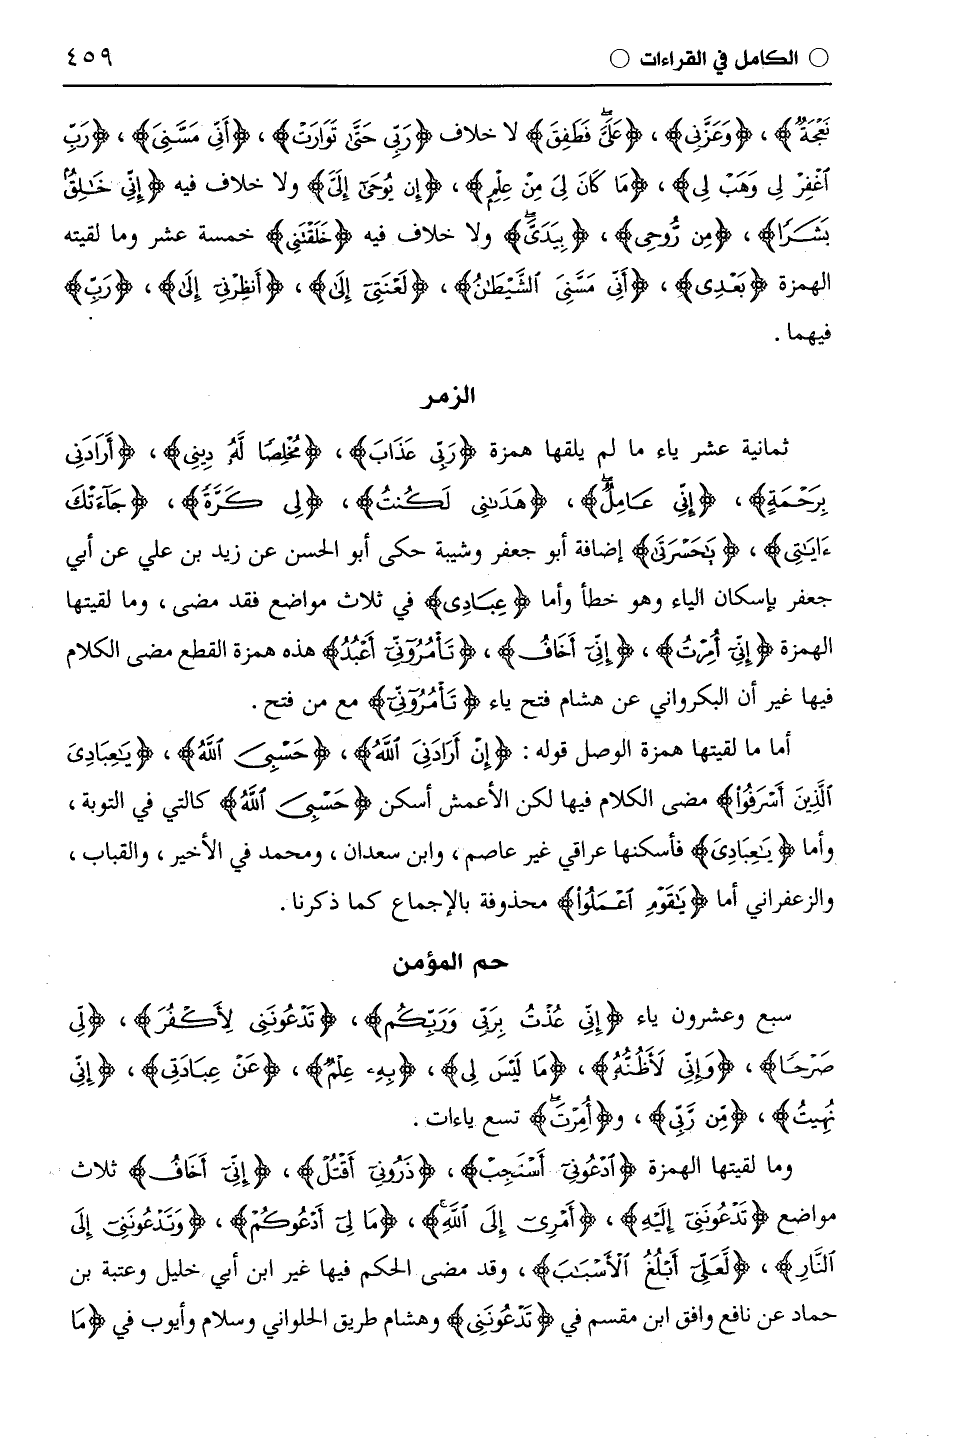 ○ الكامل في القراءات ○ ٤٥٩
نَعْجَةٌ﴾ ، ﴿وَعَزَّنِي﴾ ، ﴿عَلَيَّ فَطَفِقَ﴾ لا خلاف ﴿رَبِّي حَتَّىٰ تَوَارَتْ﴾ ، ﴿أَنِّي مَسَّنِيَ﴾ ، ﴿رَبِّ
ٱغْفِرْ لِي وَهَبْ لِي﴾ ، ﴿مَا كَانَ لِيَ مِنْ عِلْمٍ﴾ ، ﴿إِن يُوحَىٰ إِلَيَّ﴾ ولا خلاف فيه ﴿إِنِّي خَٰلِقٌ
بَشَرًا﴾ ، ﴿مِن رُّوحِي﴾ ، ﴿بِيَدَيَّ﴾ ولا خلاف فيه ﴿خَلَقْتَنِي﴾ خمسة عشر وما لقيته
الهمزة ﴿بَعْدِي﴾ ، ﴿أَنِّي مَسَّنِيَ ٱلشَّيْطَٰنُ﴾ ، ﴿لَعْنَتِي إِلَىٰ﴾ ، ﴿أَنظِرْنِي إِلَىٰ﴾ ، ﴿رَبِّ﴾
فيهما .
الزمر
ثمانية عشر ياء ما لم يلقها همزة ﴿رَبِّي عَذَابَ﴾ ، ﴿مُخْلِصًا لَّهُ دِينِي﴾ ، ﴿أَرَادَنِي
بِرَحْمَةٍ﴾ ، ﴿إِنِّي عَامِلٌ﴾ ، ﴿هَدَىٰنِي لَكُنتُ﴾ ، ﴿لِي كَرَّةً﴾ ، ﴿جَآءَتْكَ
ءَايَٰتِي﴾ ، ﴿يَٰحَسْرَتَىٰ﴾ إضافة أبو جعفر وشيبة حكى أبو الحسن عن زيد بن علي عن أبي
جعفر بإسكان الياء وهو خطأ وأما ﴿عِبَادِي﴾ في ثلاث مواضع فقد مضى ، وما لقيتها
الهمزة ﴿إِنِّيٓ أُمِرْتُ﴾ ، ﴿إِنِّيٓ أَخَافُ﴾ ، ﴿تَأْمُرُوٓنِّيٓ أَعْبُدُ﴾ هذه همزة القطع مضى الكلام
فيها غير أن البكرواني عن هشام فتح ياء ﴿تَأْمُرُوٓنِّيٓ﴾ مع من فتح .
أما ما لقيتها همزة الوصل قوله : ﴿إِنْ أَرَادَنِيَ ٱللَّهُ﴾ ، ﴿حَسْبِيَ ٱللَّهُ﴾ ، ﴿يَٰعِبَادِيَ
ٱلَّذِينَ أَسْرَفُوا۟﴾ مضى الكلام فيها لكن الأعمش أسكن ﴿حَسْبِيَ ٱللَّهُ﴾ كالتي في التوبة ،
وأما ﴿يَٰعِبَادِيَ﴾ فأسكنها عراقي غير عاصم ، وابن سعدان ، ومحمد في الأخير ، والقباب ،
والزعفراني أما ﴿يَٰقَوْمِ ٱعْمَلُوا۟﴾ محذوفة بالإجماع كما ذكرنا .
حم المؤمن
سبع وعشرون ياء ﴿إِنِّي عُذْتُ بِرَبِّي وَرَبِّكُم﴾ ، ﴿تَدْعُونَنِي لِأَكْفُرَ﴾ ، ﴿لِّي
صَرْحًا﴾ ، ﴿وَإِنِّي لَأَظُنُّهُۥ﴾ ، ﴿مَا لَيْسَ لِي﴾ ، ﴿بِهِۦ عِلْمٌ﴾ ، ﴿عَنْ عِبَادَتِي﴾ ، ﴿إِنِّي
نُهِيتُ﴾ ، ﴿مِن رَّبِّي﴾ ، و﴿أُمِرْتُ﴾ تسع ياءات .
وما لقيتها الهمزة ﴿ٱدْعُونِيٓ أَسْتَجِبْ﴾ ، ﴿ذَرُونِيٓ أَقْتُلْ﴾ ، ﴿إِنِّيٓ أَخَافُ﴾ ثلاث
مواضع ﴿تَدْعُونَنِيٓ إِلَيْهِ﴾ ، ﴿أَمْرِيٓ إِلَى ٱللَّهِ﴾ ، ﴿مَا لِيٓ أَدْعُوكُمْ﴾ ، ﴿وَتَدْعُونَنِيٓ إِلَى
ٱلنَّارِ﴾ ، ﴿لَّعَلِّيٓ أَبْلُغُ ٱلْأَسْبَٰبَ﴾ ، وقد مضى الحكم فيها غير ابن أبي خليل وعتبة بن
حماد عن نافع وافق ابن مقسم في ﴿تَدْعُونَنِي﴾ وهشام طريق الحلواني وسلام وأيوب في ﴿مَا